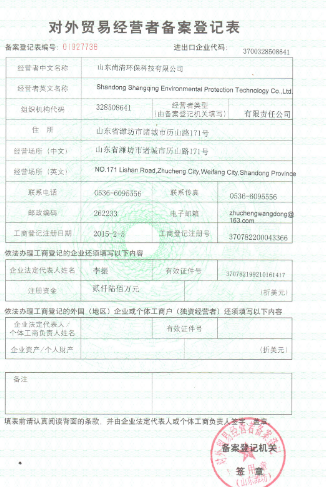 对外贸易经营者备案登记表
备案登记表编号: 01927738 进出口企业代码: 3700328508641
经营者中文名称 山东尚清环保科技有限公司
经营者英文名称 Shandong Shangqing Environmental Protection Technology Co.,Ltd.
组织机构代码 328508641 经营者类型 (由备案登记机关填写) 有限责任公司
住 所 山东省潍坊市诸城市历山路171号
经营场所（中文） 山东省潍坊市诸城市历山路171号
经营场所（英文） NO.171 Lishan Road,Zhucheng City,Weifang City,Shandong Province
联系电话 0536-6095556 联系传真 0536-6095556
邮政编码 262233 电子邮箱 zhuchengwangdong@163.com
工商登记注册日期 2015-2-5 工商登记注册号 370782200043366
依法办理工商登记的企业还须填写以下内容
企业法定代表人姓名 李振 有效证件号
注册资金 贰仟陆佰万元 (折美元)
依法办理工商登记的外国（地区）企业或个体工商户（独资经营者）还须填写以下内容
企业法定代表人/
个体工商负责人姓名 有效证件号
企业资产/个人财产 (折美元)
备注
填表前请认真阅读背面的条款，并由企业法定代表人或个体工商负责人签字、盖章。
备案登记机关
签 章